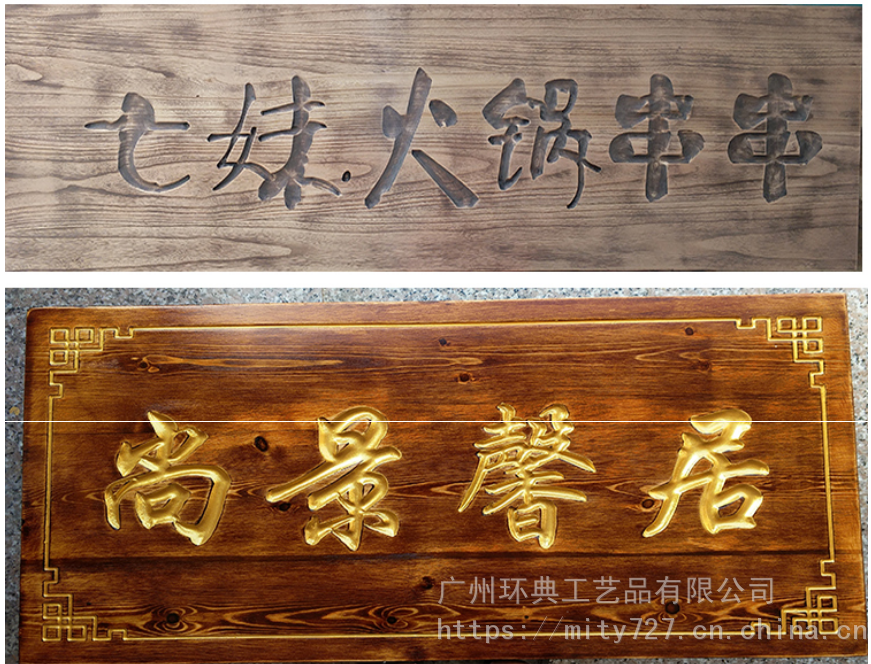 七妹火锅串串
尚景馨居
广州环典工艺品有限公司
https://mity727.cn.china.cn